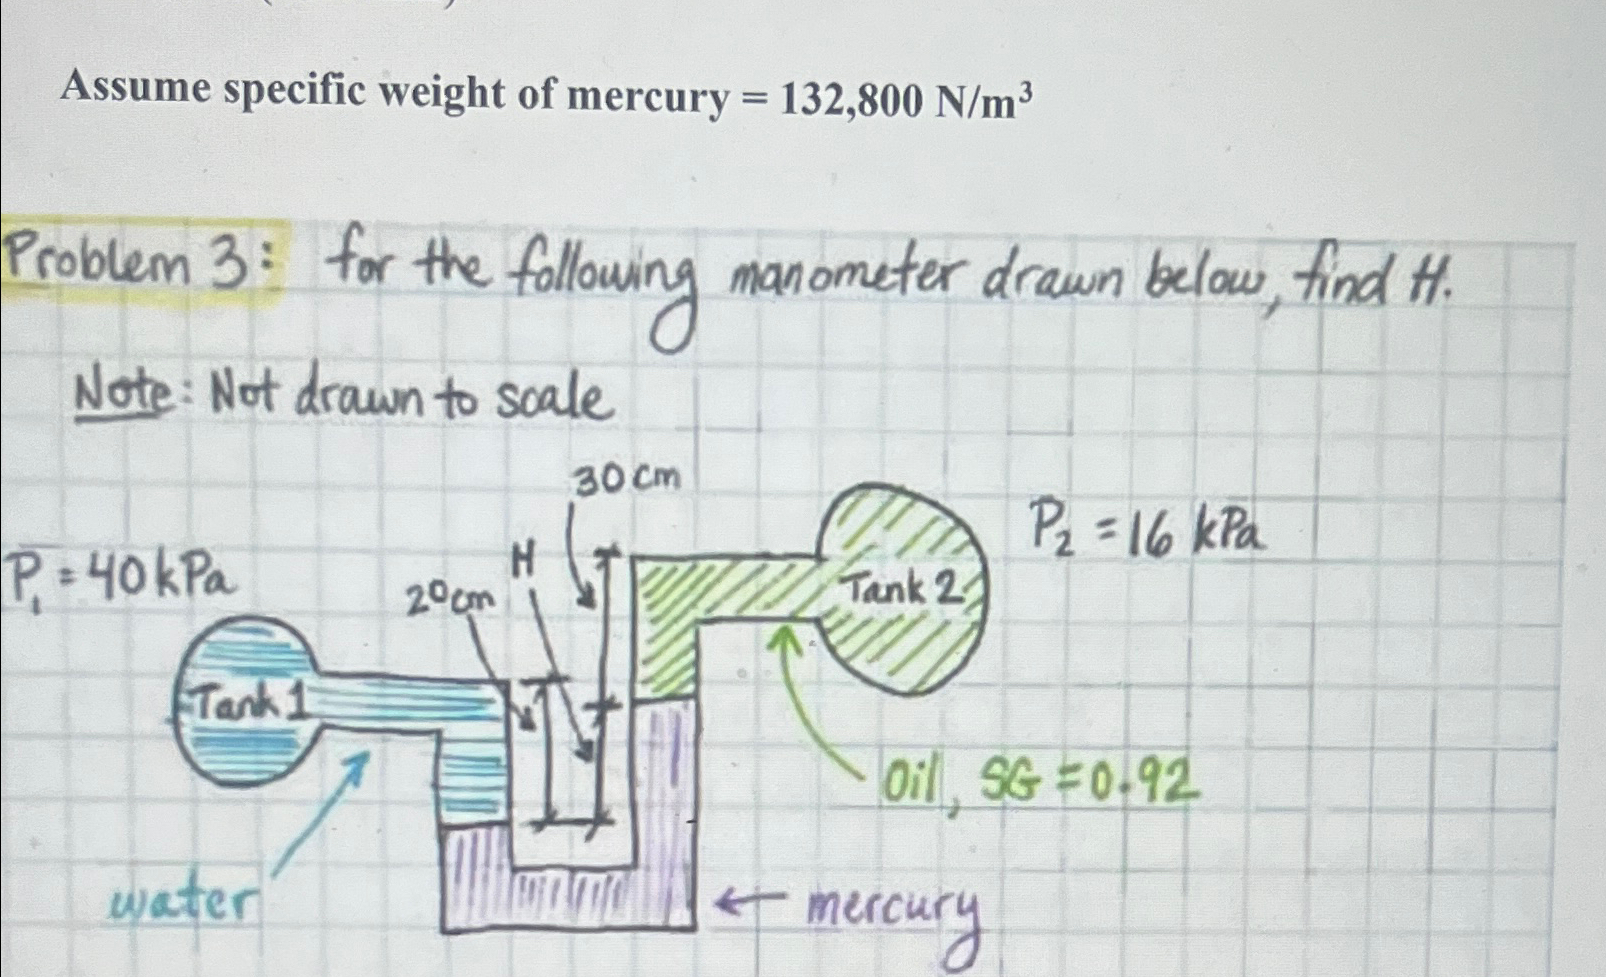 Assume specific weight of mercury = 132,800 N/m³
Problem 3: for the following manometer drawn below, find H.
Note: Not drawn to scale
30cm
P₂ = 16 kPa
H
P₁ = 40 kPa
20cm
Tank 2
Tank 1
Oil, SG = 0.92
water
← mercury